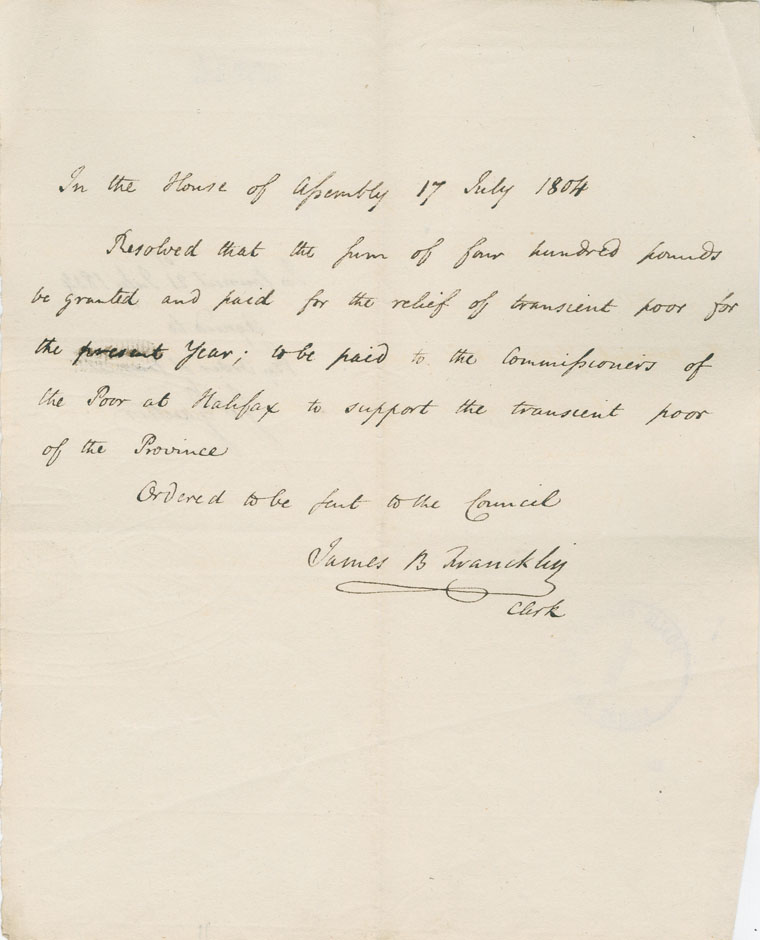 In the House of Aſsembly 17 July 1804
Resolved that the ſum of four hundred pounds
be granted and paid for the relief of transient poor for
the present Year; to be paid to the Commiſsioners of
the Poor at Halifax to support the transient poor
of the Province
Ordered to be ſent to the Council
James B Francklin
Clerk